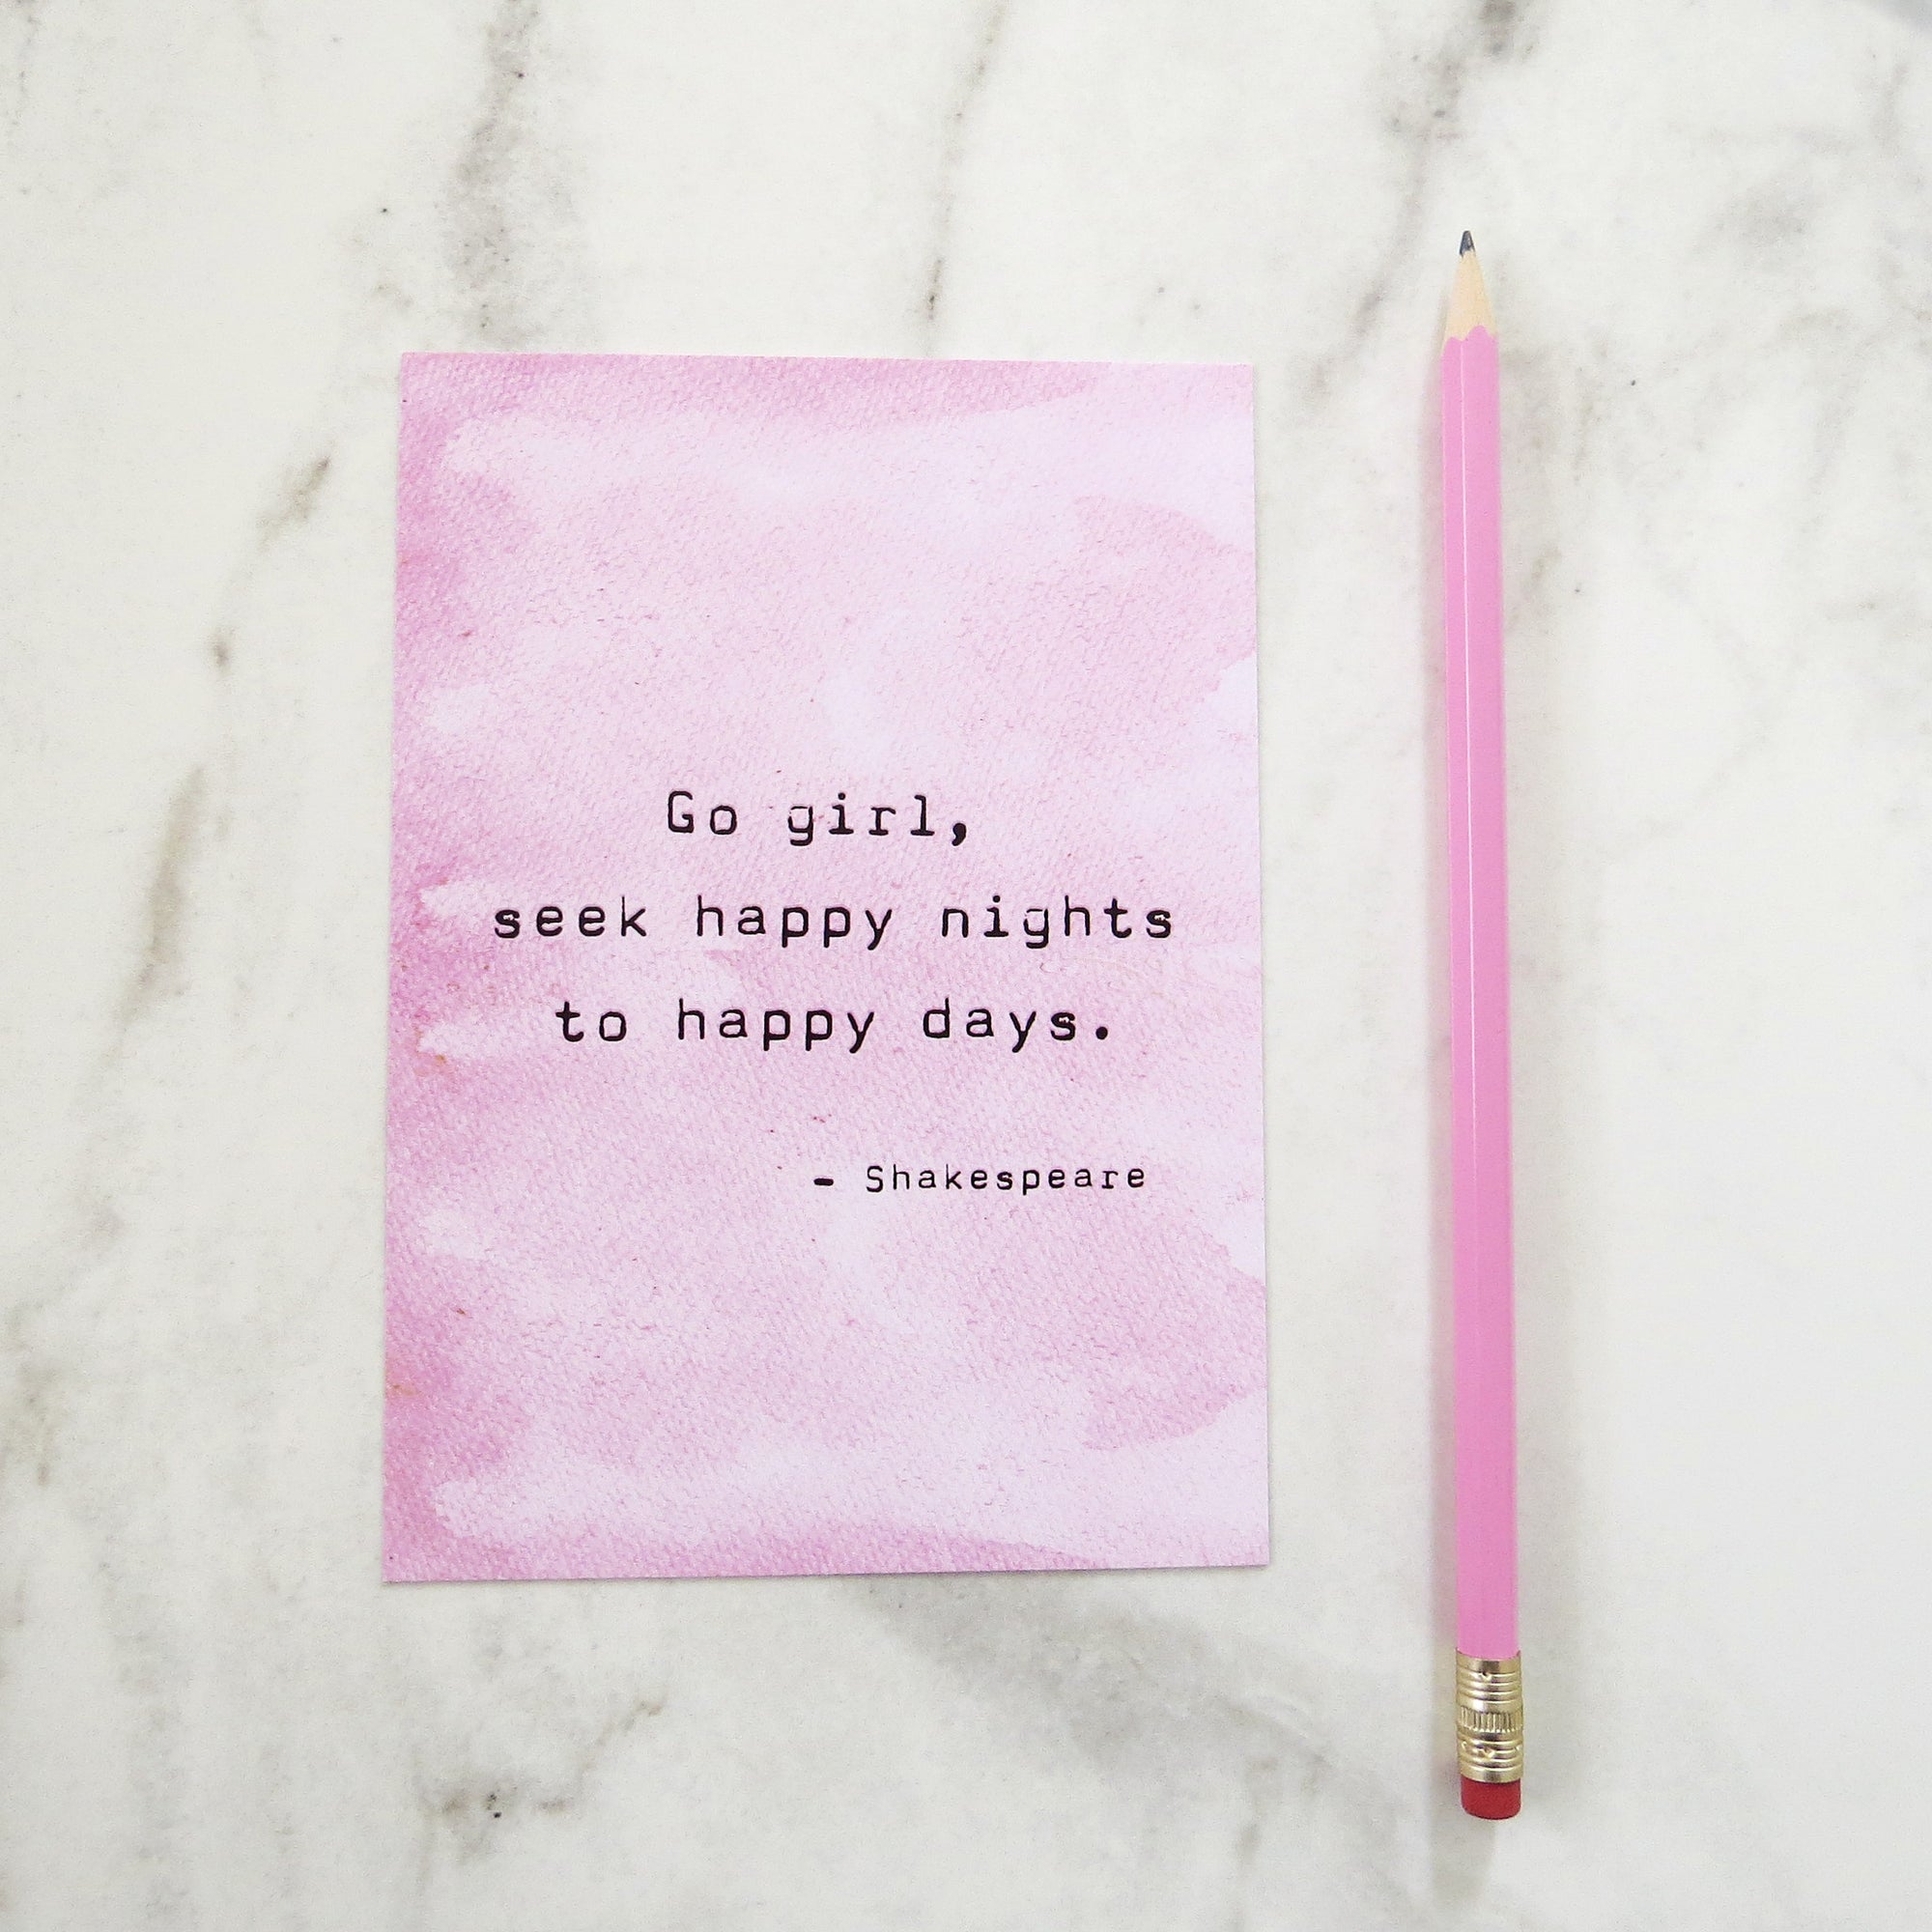 Go girl,
seek happy nights
to happy days.
- Shakespeare